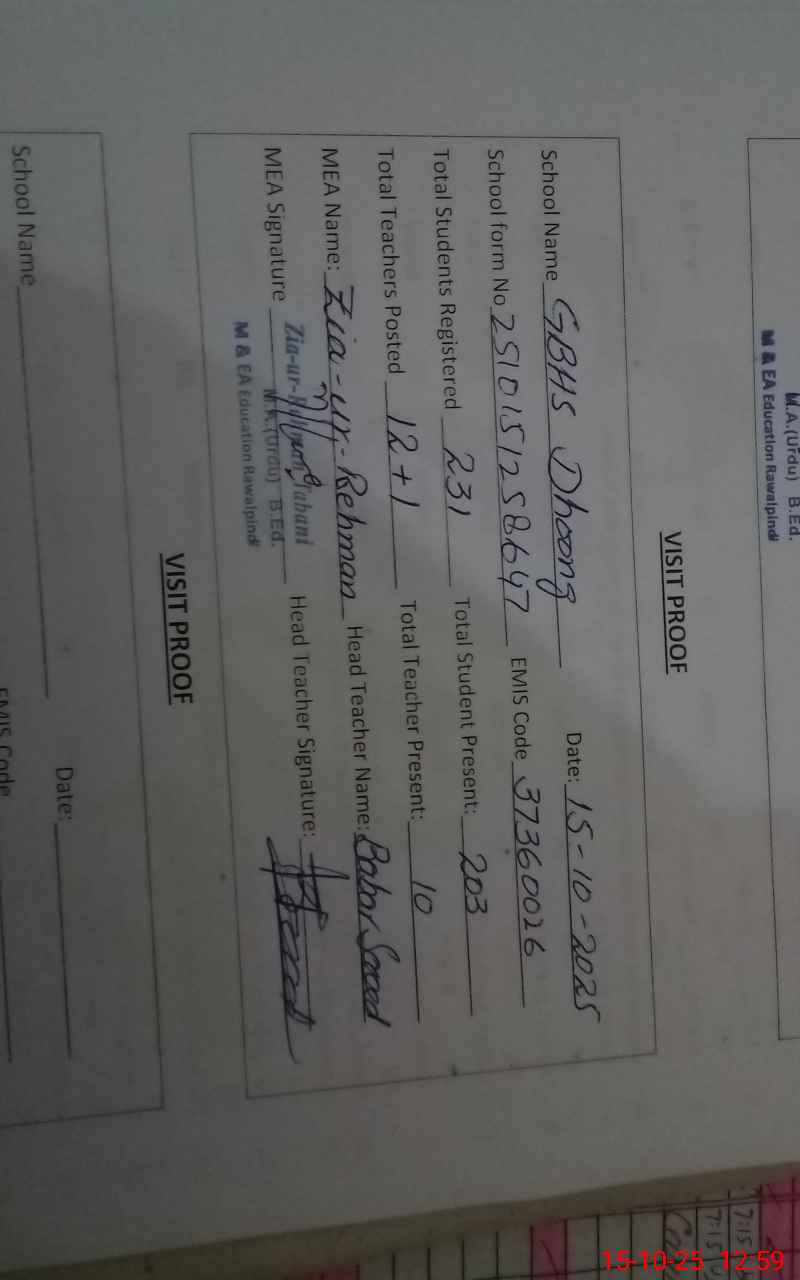 M.A.(Urdu) B.Ed.
M & EA Education Rawalpindi
VISIT PROOF
School Name GBHS Dhoong Date: 15-10-2025
School form No 2510151258647 EMIS Code 37360026
Total Students Registered 231 Total Student Present: 203
Total Teachers Posted 12+1 Total Teacher Present: 10
MEA Name: Zia-ur-Rehman Head Teacher Name: Babar Saeed
MEA Signature Head Teacher Signature:
Zia-ur-Rehman
M.A.(Urdu) B.Ed.
M & EA Education Rawalpindi
VISIT PROOF
School Name Date:
EMIS Code
7:15
7:15
15-10-25 12:59